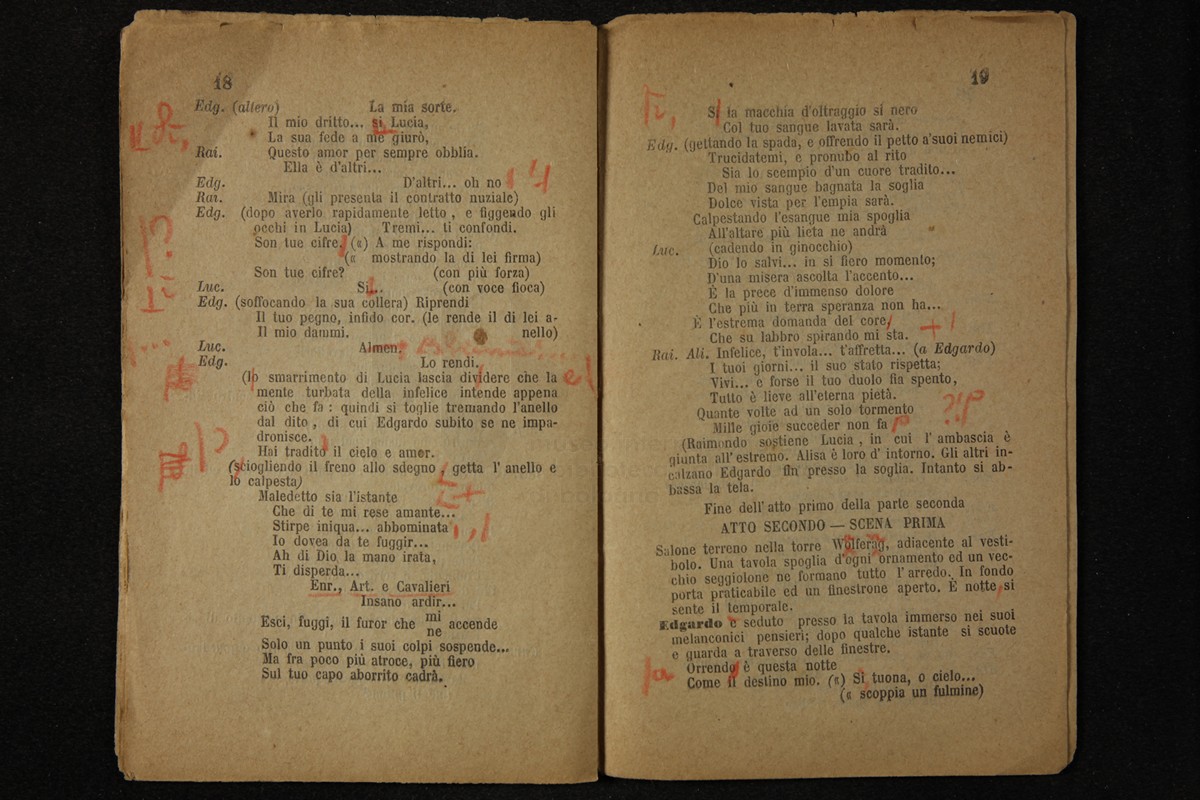 18
Edg. (altero) La mia sorte.
Il mio dritto... si Lucia,
La sua fede a me giurò,
Rai. Questo amor per sempre obblia.
Ella è d'altri...
Edg. D'altri... oh no
Rai. Mira (gli presenta il contratto nuziale)
Edg. (dopo averlo rapidamente letto, e figgendo gli
occhi in Lucia) Tremi... ti confondi.
Son tue cifre, («) A me rispondi:
(« mostrando la di lei firma)
Son tue cifre? (con più forza)
Luc. Si... (con voce fioca)
Edg. (soffocando la sua collera) Riprendi
Il tuo pegno, infido cor. (le rende il di lei a-
Il mio dammi. nello)
Luc. Almen.
Edg. Lo rendi.
(lo smarrimento di Lucia lascia dividere che la
mente turbata della infelice intende appena
ciò che fa: quindi si toglie tremando l'anello
dal dito, di cui Edgardo subito se ne impa-
dronisce.
Hai tradito il cielo e amor.
(sciogliendo il freno allo sdegno, getta l'anello e
lo calpesta)
Maledetto sia l'istante
Che di te mi rese amante...
Stirpe iniqua... abbominata
Io dovea da te fuggir...
Ah di Dio la mano irata,
Ti disperda...
Enr., Art. e Cavalieri
Insano ardir...
Esci, fuggi, il furor che mi ne accende
Solo un punto i suoi colpi sospende...
Ma fra poco più atroce, più fiero
Sul tuo capo aborrito cadrà.
19
Si la macchia d'oltraggio si nero
Col tuo sangue lavata sarà.
Edg. (gettando la spada, e offrendo il petto a'suoi nemici)
Trucidatemi, e pronubo al rito
Sia lo scempio d'un cuore tradito...
Del mio sangue bagnata la soglia
Dolce vista per l'empia sarà.
Calpestando l'esangue mia spoglia
All'altare più lieta ne andrà
Luc. (cadendo in ginocchio)
Dio lo salvi... in si fiero momento;
D'una misera ascolta l'accento...
È la prece d'immenso dolore
Che più in terra speranza non ha...
È l'estrema domanda del core,
Che su labbro spirando mi sta.
Rai. Ali. Infelice, t'invola... t'affretta... (a Edgardo)
I tuoi giorni... il suo stato rispetta;
Vivi... e forse il tuo duolo fia spento,
Tutto è lieve all'eterna pietà.
Quante volte ad un solo tormento
Mille gioie succeder non fa
(Raimondo sostiene Lucia, in cui l'ambascia è
giunta all'estremo. Alisa è loro d'intorno. Gli altri in-
calzano Edgardo fin presso la soglia. Intanto si ab-
bassa la tela.
Fine dell'atto primo della parte seconda
ATTO SECONDO — SCENA PRIMA
Salone terreno nella torre Wolferag, adiacente al vesti-
bolo. Una tavola spoglia d'ogni ornamento ed un vec-
chio seggiolone ne formano tutto l'arredo. In fondo
porta praticabile ed un finestrone aperto. È notte, si
sente il temporale.
Edgardo è seduto presso la tavola immerso nei suoi
melanconici pensieri; dopo qualche istante si scuote
e guarda a traverso delle finestre.
Orrendo è questa notte
Come il destino mio. («) Si tuona, o cielo...
(« scoppia un fulmine)